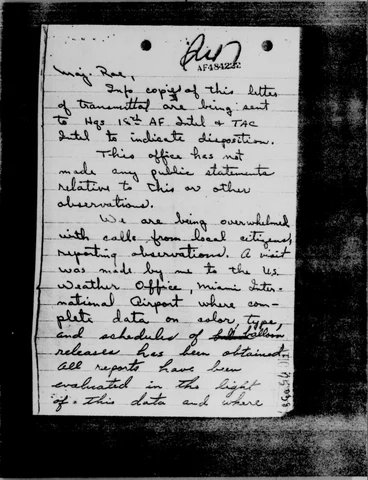 AF484232
Maj. Rae,
Info copies of this letter
of transmittal are being sent
to Hqs 18th AF Intel & TAC
Intel to indicate disposition.
This office has not
made any public statements
relative to this or other
observations.
We are being overwhelmed
with calls from local citizens
reporting observations. A visit
was made by me to the U.S.
Weather Office, Miami Inter-
national Airport where com-
plete data on color, type,
and schedules of balloon
releases has been obtained.
All reports have been
evaluated in the light
of this data and where